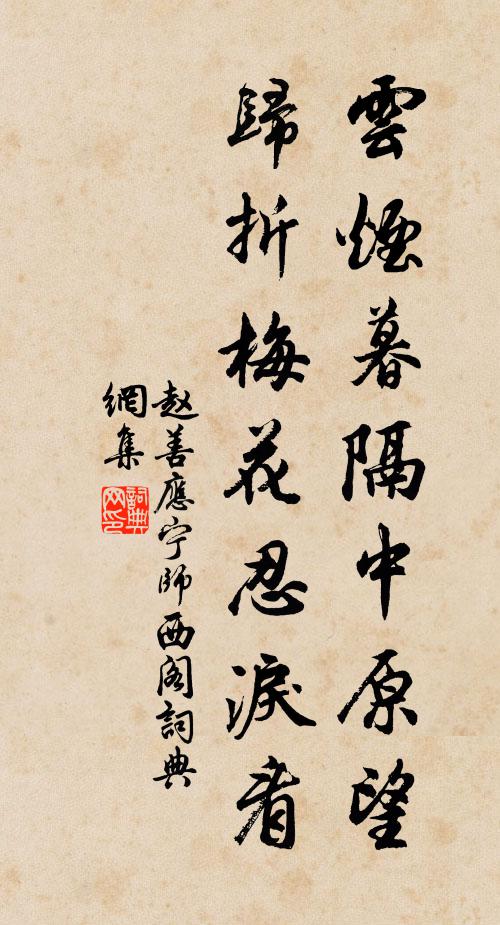 雲煙暮隔中原望
歸折梅花忍淚看
赵善應宁師西阁詞典
網集
詞典
网印